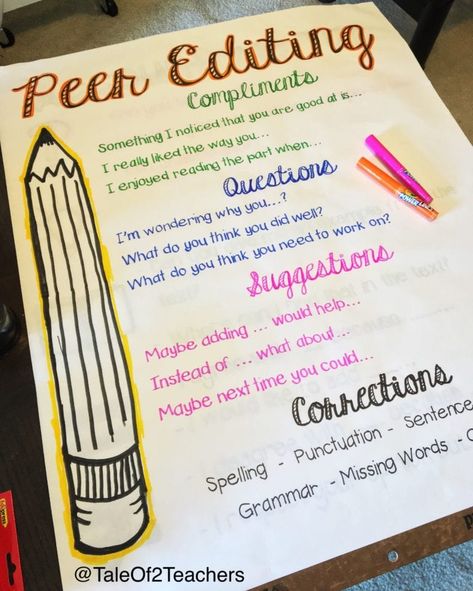 Peer Editing
Compliments
Something I noticed that you are good at is...
I really liked the way you...
I enjoyed reading the part when...
Questions
I'm wondering why you...?
What do you think you did well?
What do you think you need to work on?
Suggestions
Maybe adding ... would help...
Instead of ... what about...
Maybe next time you could...
Corrections
Spelling - Punctuation - Sentence
Grammar - Missing Words -
@TaleOf2Teachers